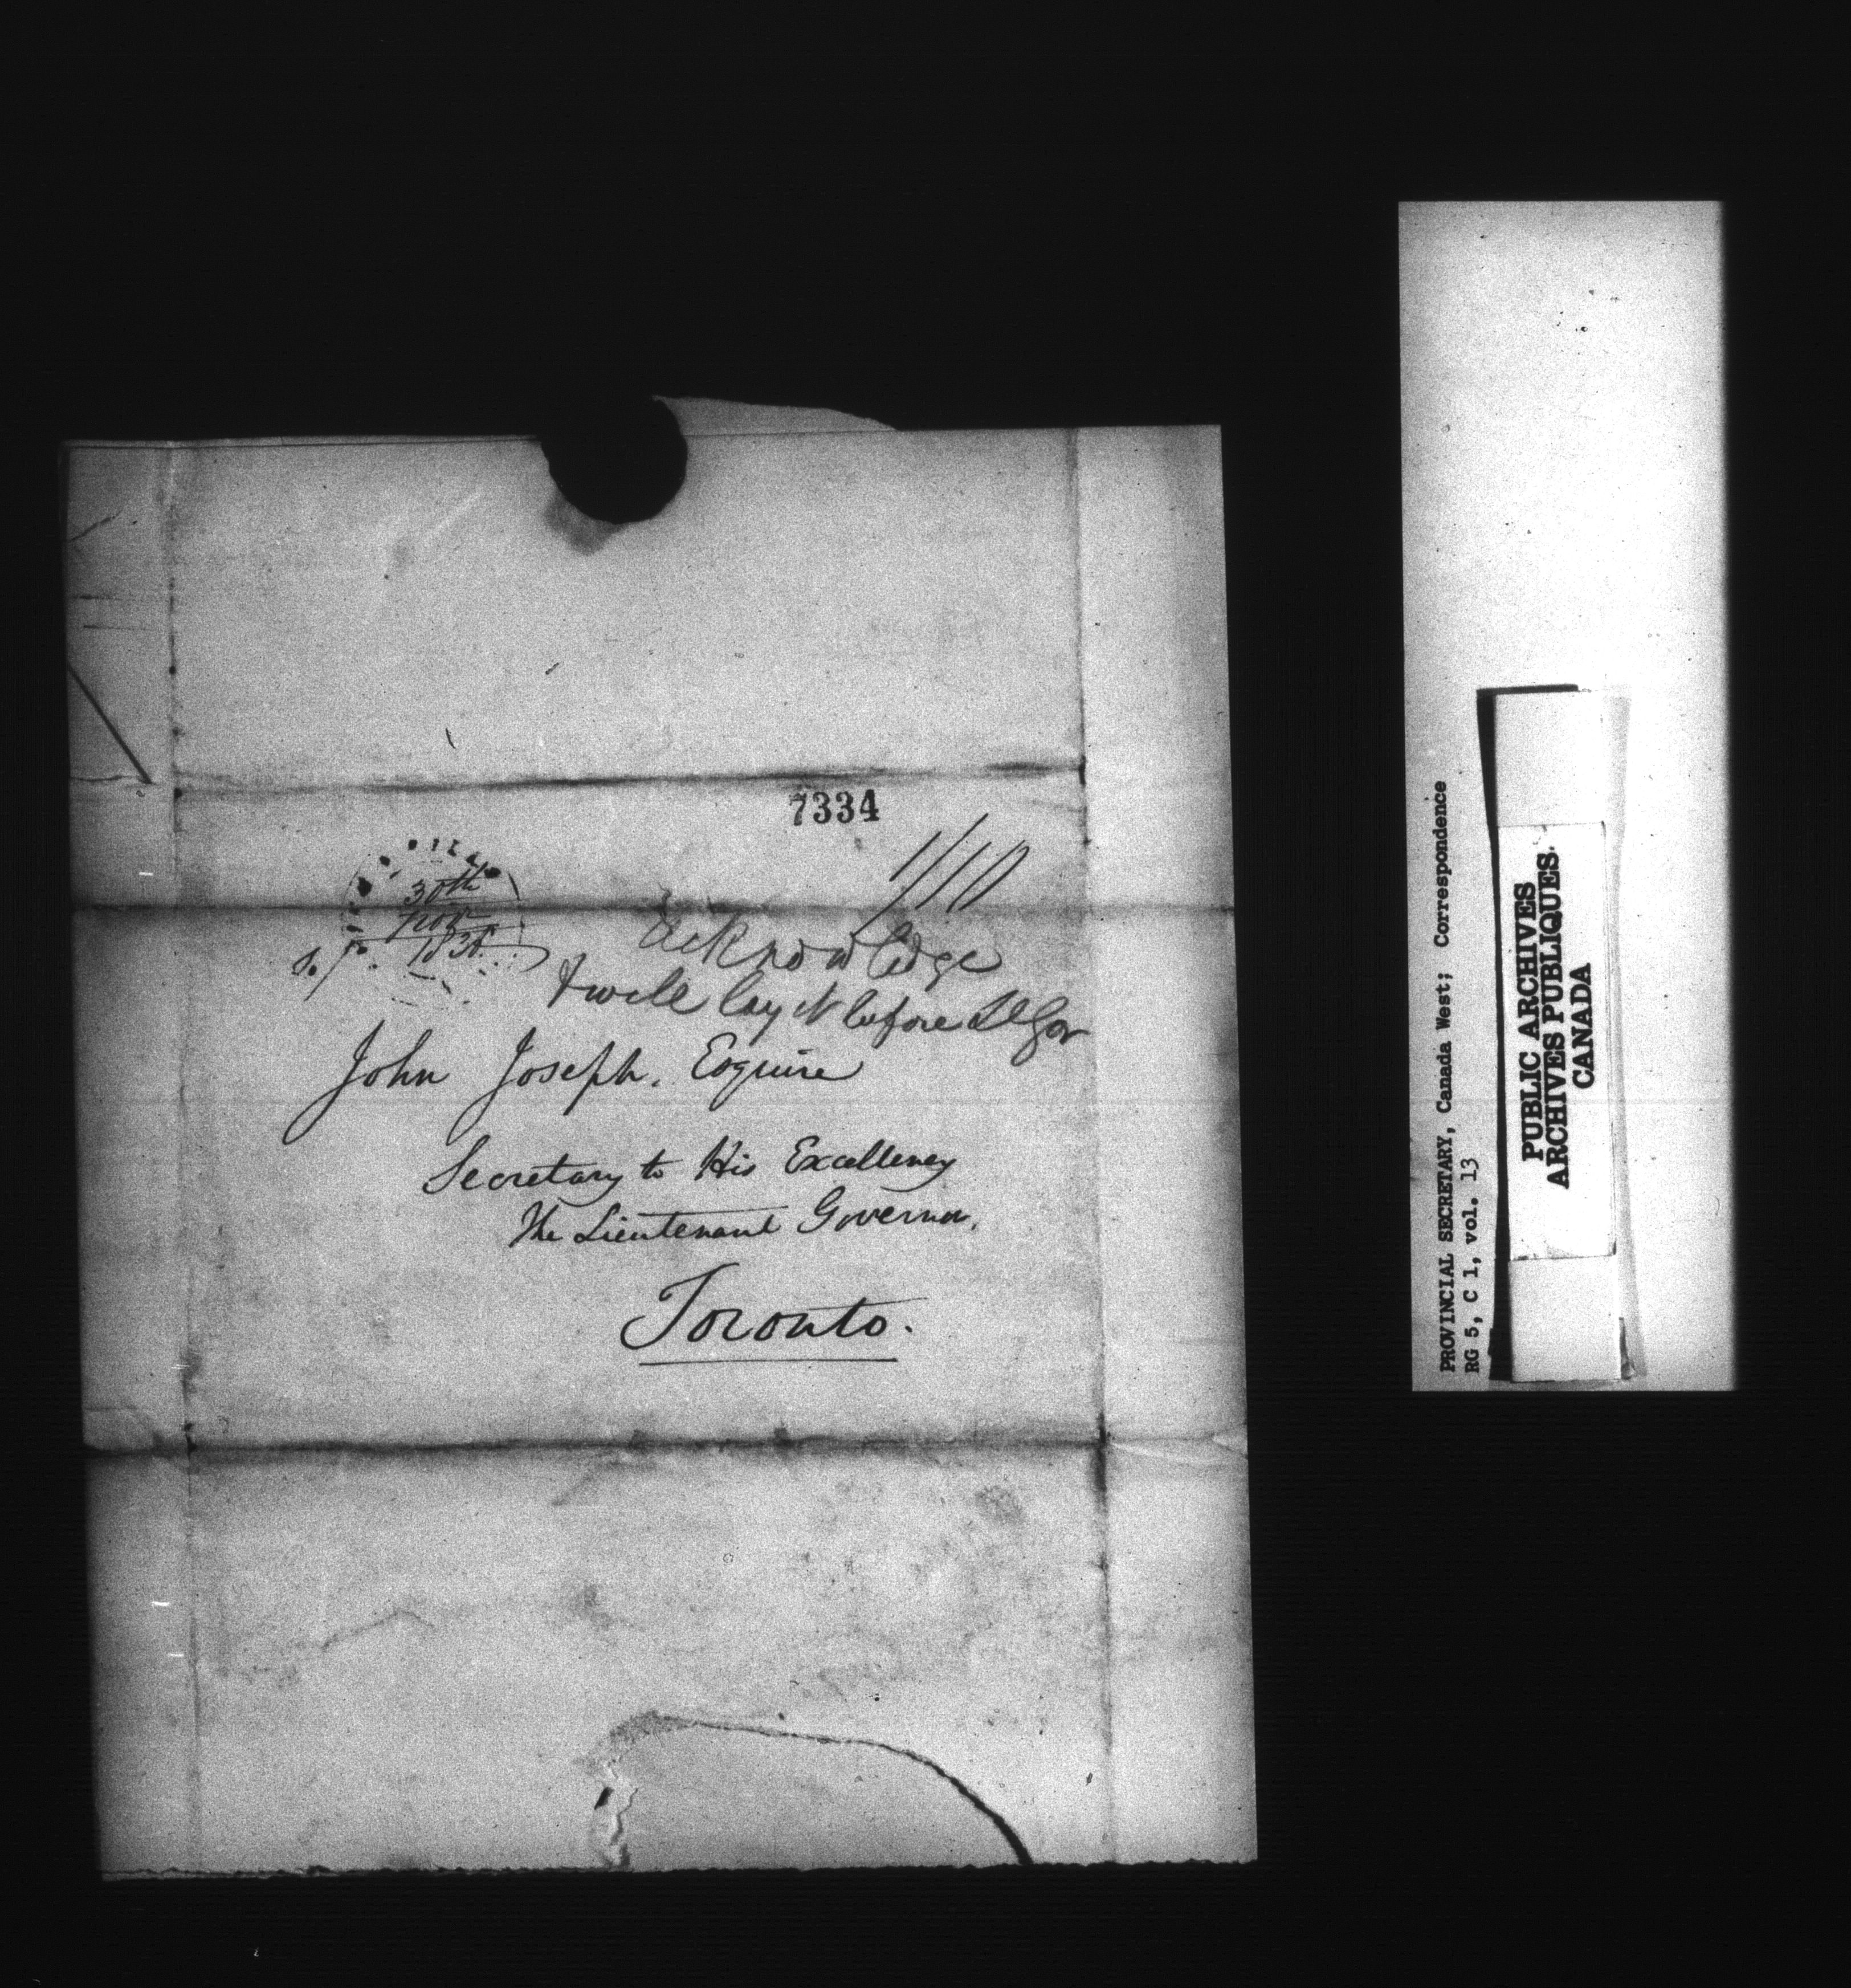 7334
1/10
30th
Nov
183
Acknowledge
& will lay it before Lt Gov
John Joseph, Esquire
Secretary to His Excellency
The Lieutenant Governor.
Toronto.
PROVINCIAL SECRETARY, Canada West; Correspondence
RG 5, C 1, vol. 13
PUBLIC ARCHIVES
ARCHIVES PUBLIQUES
CANADA